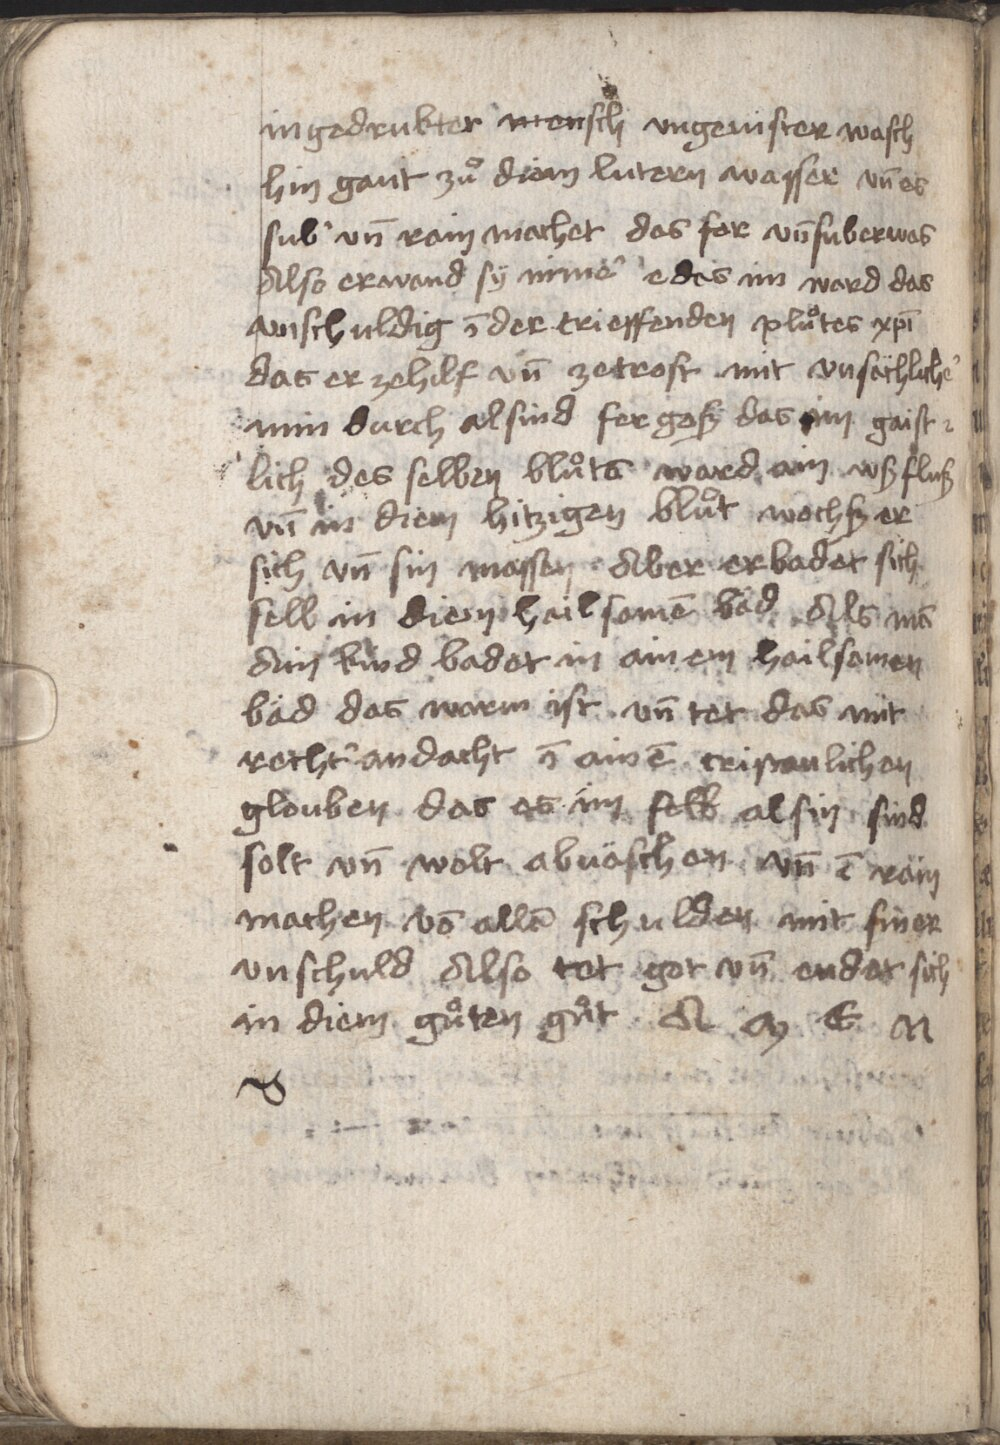 ingedrukter mensch ungeuister wasch
hin gant zuͦ diem lutern wasser vn̄ es
sub᾽ vn̄ rain machet das fer vn̄suber was
Also erwand sÿ nime᾽ e das im ward das
vnschuldig ī der trieffenden pluͦtes xp̄i
das er zehilf vn̄ zetrost mit vnsächliche᾽
min durch al sind fergoß das im gaist
lich des selben bluͦts ward ain vßfluß
vn̄ in diem hitzigen bluͦt wochß er
sich vn̄ sin massen Aber erbadet sich
selb in diem hailsamē bäd Als mā
Ain kind badet in ainem hailsamen
bäd das warm ist vn̄ tet das mit
recht᾽ andacht ī ainē cristanlichen
glouben das es im sellb al sin sind
solt vn̄ wolt abwäschen vn̄ ī räin
machen vō allē schulden mit siner
vnschuld Also tet got vn̄ endet sich
in diem guͦten guͦt A M E N